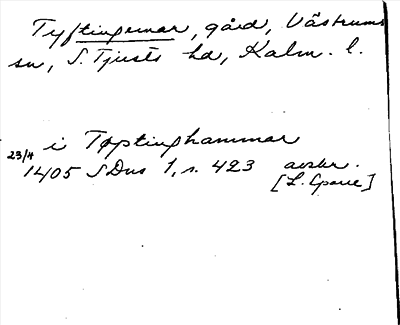 Tyftingemar, gård, Västrums
sn, S. Tjusts hd, Kalm. l.
i Typtinghammar
23/4
1405 SDns 1, s. 423 avskr.
[L. Sparre]